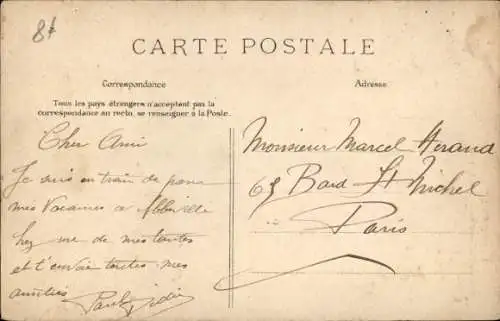 8f
CARTE POSTALE
Correspondance
Adresse
Tous les pays étrangers n'acceptent pas la
correspondance au recto, se renseigner à la Poste.
Cher Ami
Je suis en train de passer
mes Vacances a Abbeville
chez une de mes tantes
et t'envoie toutes mes
amitiés
Monsieur Marcel Herand
63 Bard St Michel
Paris